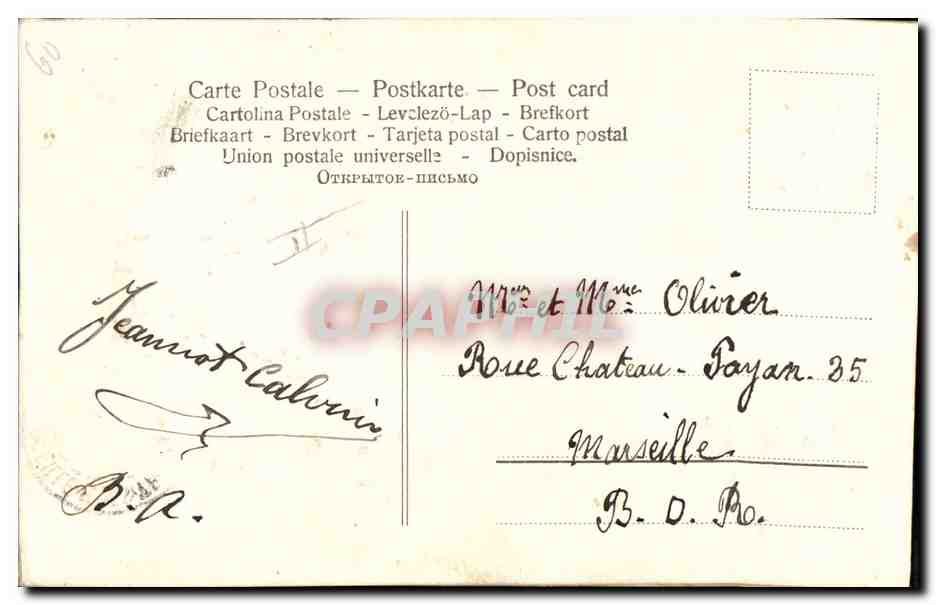 Carte Postale — Postkarte — Post card
Cartolina Postale - Levelezö-Lap - Brefkort
Briefkaart - Brevkort - Tarjeta postal - Carto postal
Union postale universelle - Dopisnice.
Открытое-письмо
II
CPAPHIL
Jeannot Calvin
B. A.
et Mme Olivier
Rue Chateau - Payan. 35
Marseille
B. D. R.